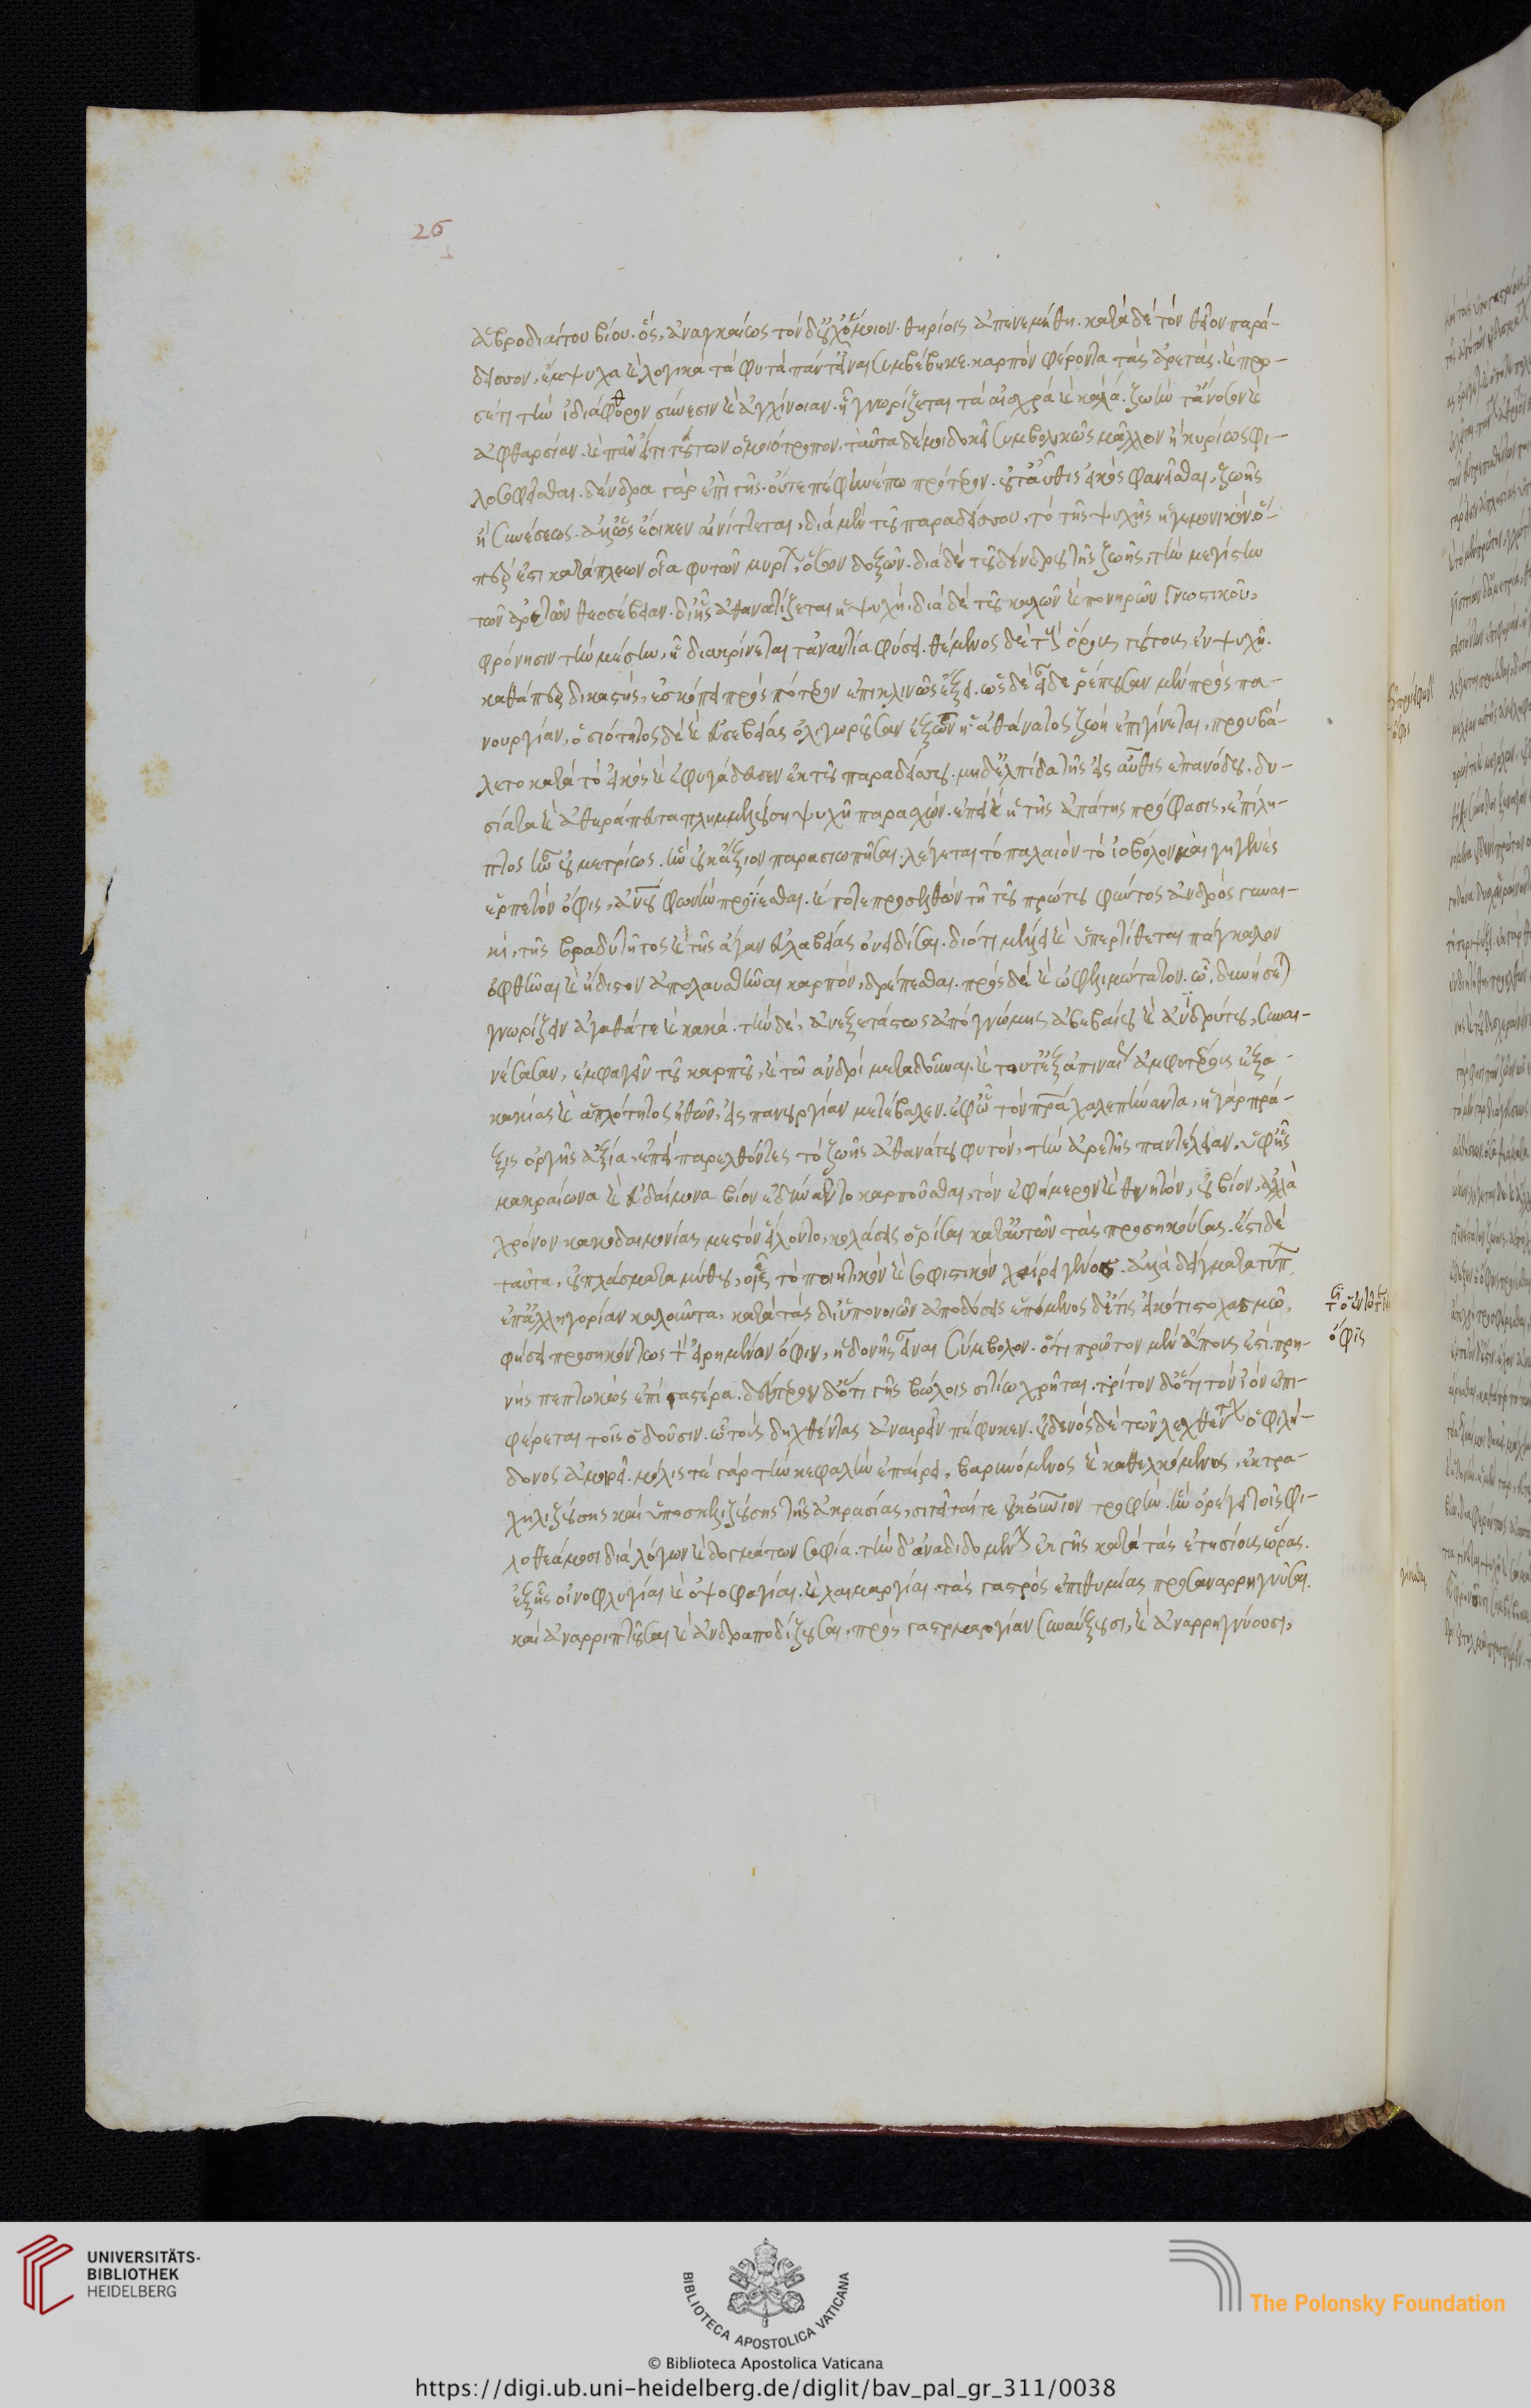 26
ἁβροδιαίτου βίου. ὃς, ἀναγκαίως τὸν δυσχείμερον. θηρίοις ἀπενεμήθη. κατὰ δὲ τὸν θεῖον παρά-
δεισον, ἔμψυχα καὶ λογικὰ τὰ φυτὰ πάντ' εἶναι συμβέβηκε. καρπὸν φέροντα τὰς ἀρετάς. καὶ προ-
σέτι τὴν ἀδιάφθορον σύνεσιν καὶ ἀγχίνοιαν. ᾗ γνωρίζεται τὰ αἰσχρὰ καὶ καλά. ζωήν τ' ἄνοσον καὶ
ἀφθαρσίαν. καὶ πᾶν εἴ τι τούτων ὁμοιότροπον. ταῦτα δέ μοι δοκεῖ συμβολικῶς μᾶλλον ἢ κυρίως φι-
λοσοφεῖσθαι. δένδρα γὰρ ἐπὶ γῆς. οὔτε πέφηνέ πω πρότερον. οὔτ' αὖθις εἰκὸς φανεῖσθαι, ζωῆς
ἢ συνέσεως. ἀλλ' ὡς ἔοικεν αἰνίττεται, διὰ μὲν τοῦ παραδείσου, τὸ τῆς ψυχῆς ἡγεμονικὸν. ὅ-
περ ἐστὶ κατάπλεων οἷα φυτῶν μυρίων ὅσων δοξῶν. διὰ δὲ τοῦ δένδρου τῆς ζωῆς, τὴν μεγίστην
τῶν ἀρετῶν θεοσέβειαν. δι' ἧς ἀθανατίζεται ἡ ψυχή. διὰ δὲ τοῦ καλῶν καὶ πονηρῶν γνωστικοῦ,
φρόνησιν τὴν μέσην, ᾗ διακρίνεται τἀναντία φύσει. θέμενος δὲ τοὺς ὅρους τούτους ἐν ψυχῇ.
καθάπερ δικαστὴς, ἐσκόπει πρὸς πότερον ἐπικλινῶς ἕξει. ὡς δὲ εἶδε ῥέπουσαν μὲν πρὸς πα-
νουργίαν, ὁσιότητος δὲ καὶ εὐσεβείας ὀλιγωροῦσαν ἐξ ὧν ἡ ἀθάνατος ζωὴ ἐπιγίνεται, προυβά-
λετο κατὰ τὸ εἰκὸς καὶ ἐφυγάδευσεν ἐκ τοῦ παραδείσου. μηδ' ἐλπίδα τῆς εἰς αὖθις ἐπανόδου. δυ-
σίατα καὶ ἀθεράπευτα πλημμελούσῃ ψυχῇ παρασχών. ἐπεὶ καὶ ἡ τῆς ἀπάτης πρόφασις, ἐπίλη-
πτος ἦν οὐ μετρίως. ἣν οὐκ ἄξιον παρασιωπῆσαι. λέγεται τὸ παλαιὸν τὸ ἰοβόλον καὶ γηγενὲς
ἑρπετὸν ὄφις, ἀνθρώπου φωνὴν προΐεσθαι. καί ποτε προσελθὼν τῇ τοῦ πρώτου φύντος ἀνδρὸς γυναι-
κὶ, τῆς βραδυτῆτος καὶ τῆς ἄγαν εὐλαβείας ὀνειδίσαι. διότι μέλλει καὶ ὑπερτίθεται πάγκαλον
ὀφθῆναι καὶ ἥδιστον ἀπολαυσθῆναι καρπὸν, δρέπεσθαι. πρὸς δὲ καὶ ὠφελιμώτατον. ᾧ, δυνήσεται
γνωρίζειν ἀγαθά τε καὶ κακά. τὴν δὲ, ἀνεξετάστως ἀπὸ γνώμης ἀβεβαίου καὶ ἀνιδρύτου, συναι-
νέσασαν, ἐμφαγεῖν τοῦ καρποῦ, καὶ τῷ ἀνδρὶ μεταδοῦναι. καὶ τοῦτ' ἐξαπιναίως ἀμφοτέρους ἐξ ἀ-
κακίας καὶ ἁπλότητος ἠθῶν, εἰς πανουργίαν μετέβαλεν. ἐφ' ᾧ τὸν πατέρα χαλεπήναντα, ἡ γὰρ πρᾶ-
ξις ὀργῆς ἀξία, ἐπεὶ παρελθόντες τὸ ζωῆς ἀθανάτου φυτὸν, τὴν ἀρετῆς παντέλειαν, ὑφ' ἧς
μακραίωνα καὶ εὐδαίμονα βίον ἐδύναντο καρποῦσθαι, τὸν ἐφήμερον καὶ θνητὸν, οὐ βίον, ἀλλὰ
χρόνον κακοδαιμονίας μεστὸν εἵλοντο, κολάσεις ὁρίσαι κατ' αὐτῶν τὰς προσηκούσας. ἔστι δὲ
ταῦτα, οὐ πλάσματα μύθου, οἷς τὸ ποιητικὸν καὶ σοφιστικὸν χαίρει γένος. ἀλλὰ δείγματα τύπων
ἐπ' ἀλληγορίαν καλοῦντα, κατὰ τὰς δι' ὑπονοιῶν ἀποδόσεις ἑπόμενος δέ τις εἰκότι στοχασμῷ,
φήσει προσηκόντως τὸν εἰρημένον ὄφιν, ἡδονῆς εἶναι σύμβολον. ὅτι πρῶτον μὲν ἄπους ἐστὶ πρη-
νὴς πεπτωκὼς ἐπὶ γαστέρα. δεύτερον δ' ὅτι γῆς βώλοις σιτίῳ χρῆται. τρίτον δ' ὅτι τὸν ἰὸν ἐπι-
φέρεται τοῖς ὀδοῦσιν. ᾧ τοὺς δηχθέντας ἀναιρεῖν πέφυκεν. οὐδενὸς δὲ τῶν λεχθέντων ὁ φιλή-
δονος ἀμοιρεῖ. μόλις τε γὰρ τὴν κεφαλὴν ἐπαίρει, βαρυνόμενος καὶ καθελκόμενος, ἐκτρα-
χηλιζούσης καὶ ὑποσκελιζούσης τῆς ἀκρασίας, σιτεῖταί τε οὐκ οὐράνιον τροφὴν. ἣν ὀρέγει τοῖς φι-
λοθεάμοσι διὰ λόγων καὶ δογμάτων σοφία. τὴν δ' ἀναδιδομένην ἐκ γῆς κατὰ τὰς ἐτησίους ὥρας.
ἐξ ἧς οἰνοφλυγίαι καὶ ὀψοφαγίαι. καὶ λαιμαργίαι. τὰς γαστρὸς ἐπιθυμίας προσαναρρηγνῦσαι.
καὶ ἀναρριπτοῦσαι καὶ ἀνδραποδίζουσαι, πρὸς γαστριμαργίαν συναύξουσι, καὶ ἀναρρηγνύουσι,
ὄφις
UNIVERSITÄTS-
BIBLIOTHEK
HEIDELBERG
BIBLIOTECA APOSTOLICA VATICANA
The Polonsky Foundation
© Biblioteca Apostolica Vaticana
https://digi.ub.uni-heidelberg.de/diglit/bav_pal_gr_311/0038